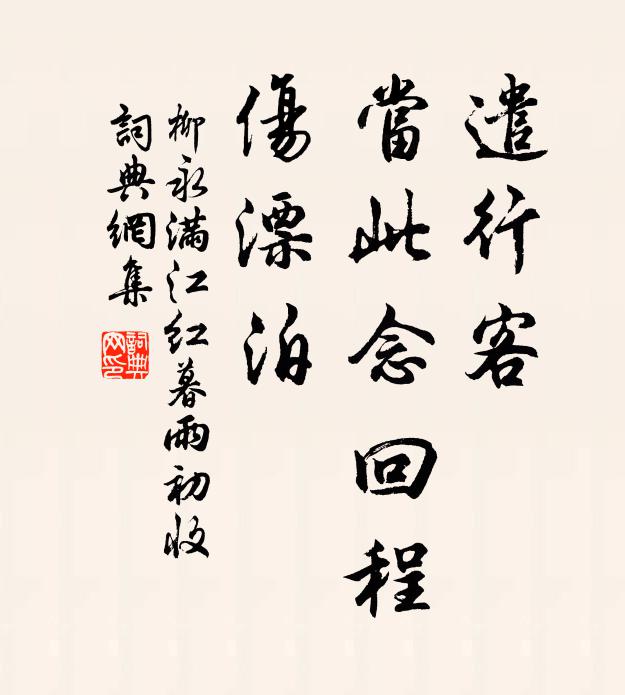 遣行客
當此念回程
傷漂泊
柳永满江红暮雨初收
詞典網集
詞典
网印